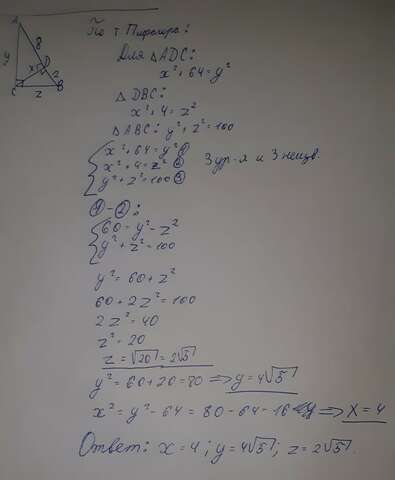 A
y
8
x
D
2
C
z
B
По т Пифагора:
Для △ADC:
x²+64=y²
△ DBC:
x²+4=z²
△ABC: y²+z²=100
x²+64=y² ①
x²+4=z² ②
y²+z²=100 ③
3 ур-я и 3 неизв.
①-②:
60=y²-z²
y²+z²=100
y²=60+z²
60+2z²=100
2z²=40
z²=20
z=√20=2√5
y²=60+20=80 => y=4√5
x²=y²-64=80-64=16 => x=4
Ответ: x=4; y=4√5; z=2√5.